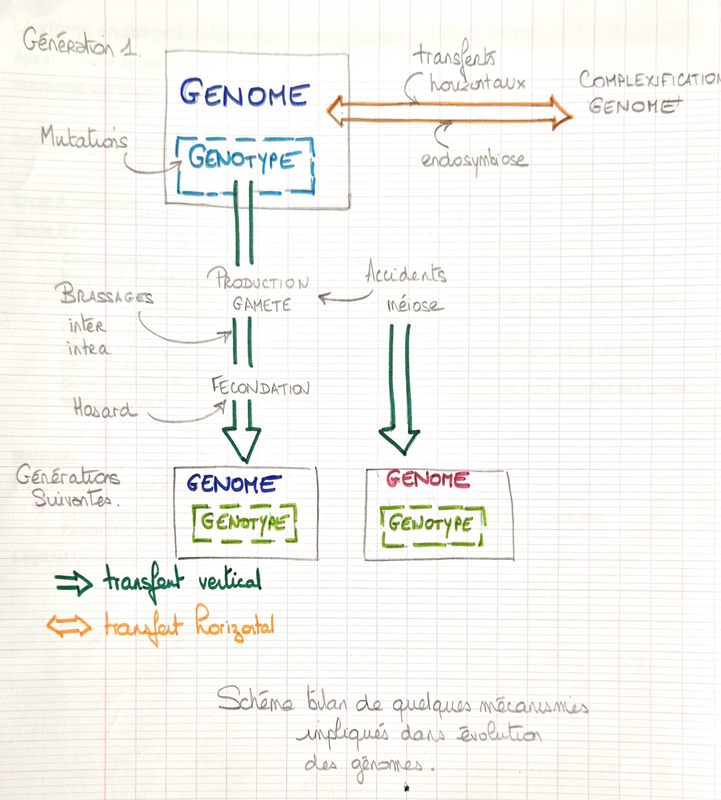 Génération 1.
GENOME
transferts
horizontaux
COMPLEXIFICATION
GENOME
Mutations
GENOTYPE
endosymbiose
PRODUCTION
GAMETE
Accidents
méiose
BRASSAGES
inter
intra
FECONDATION
Hasard
Générations
Suivantes.
GENOME
GENOTYPE
GENOME
GENOTYPE
transfert vertical
transfert horizontal
Schéma bilan de quelques mécanismes
impliqués dans évolution
des génomes.